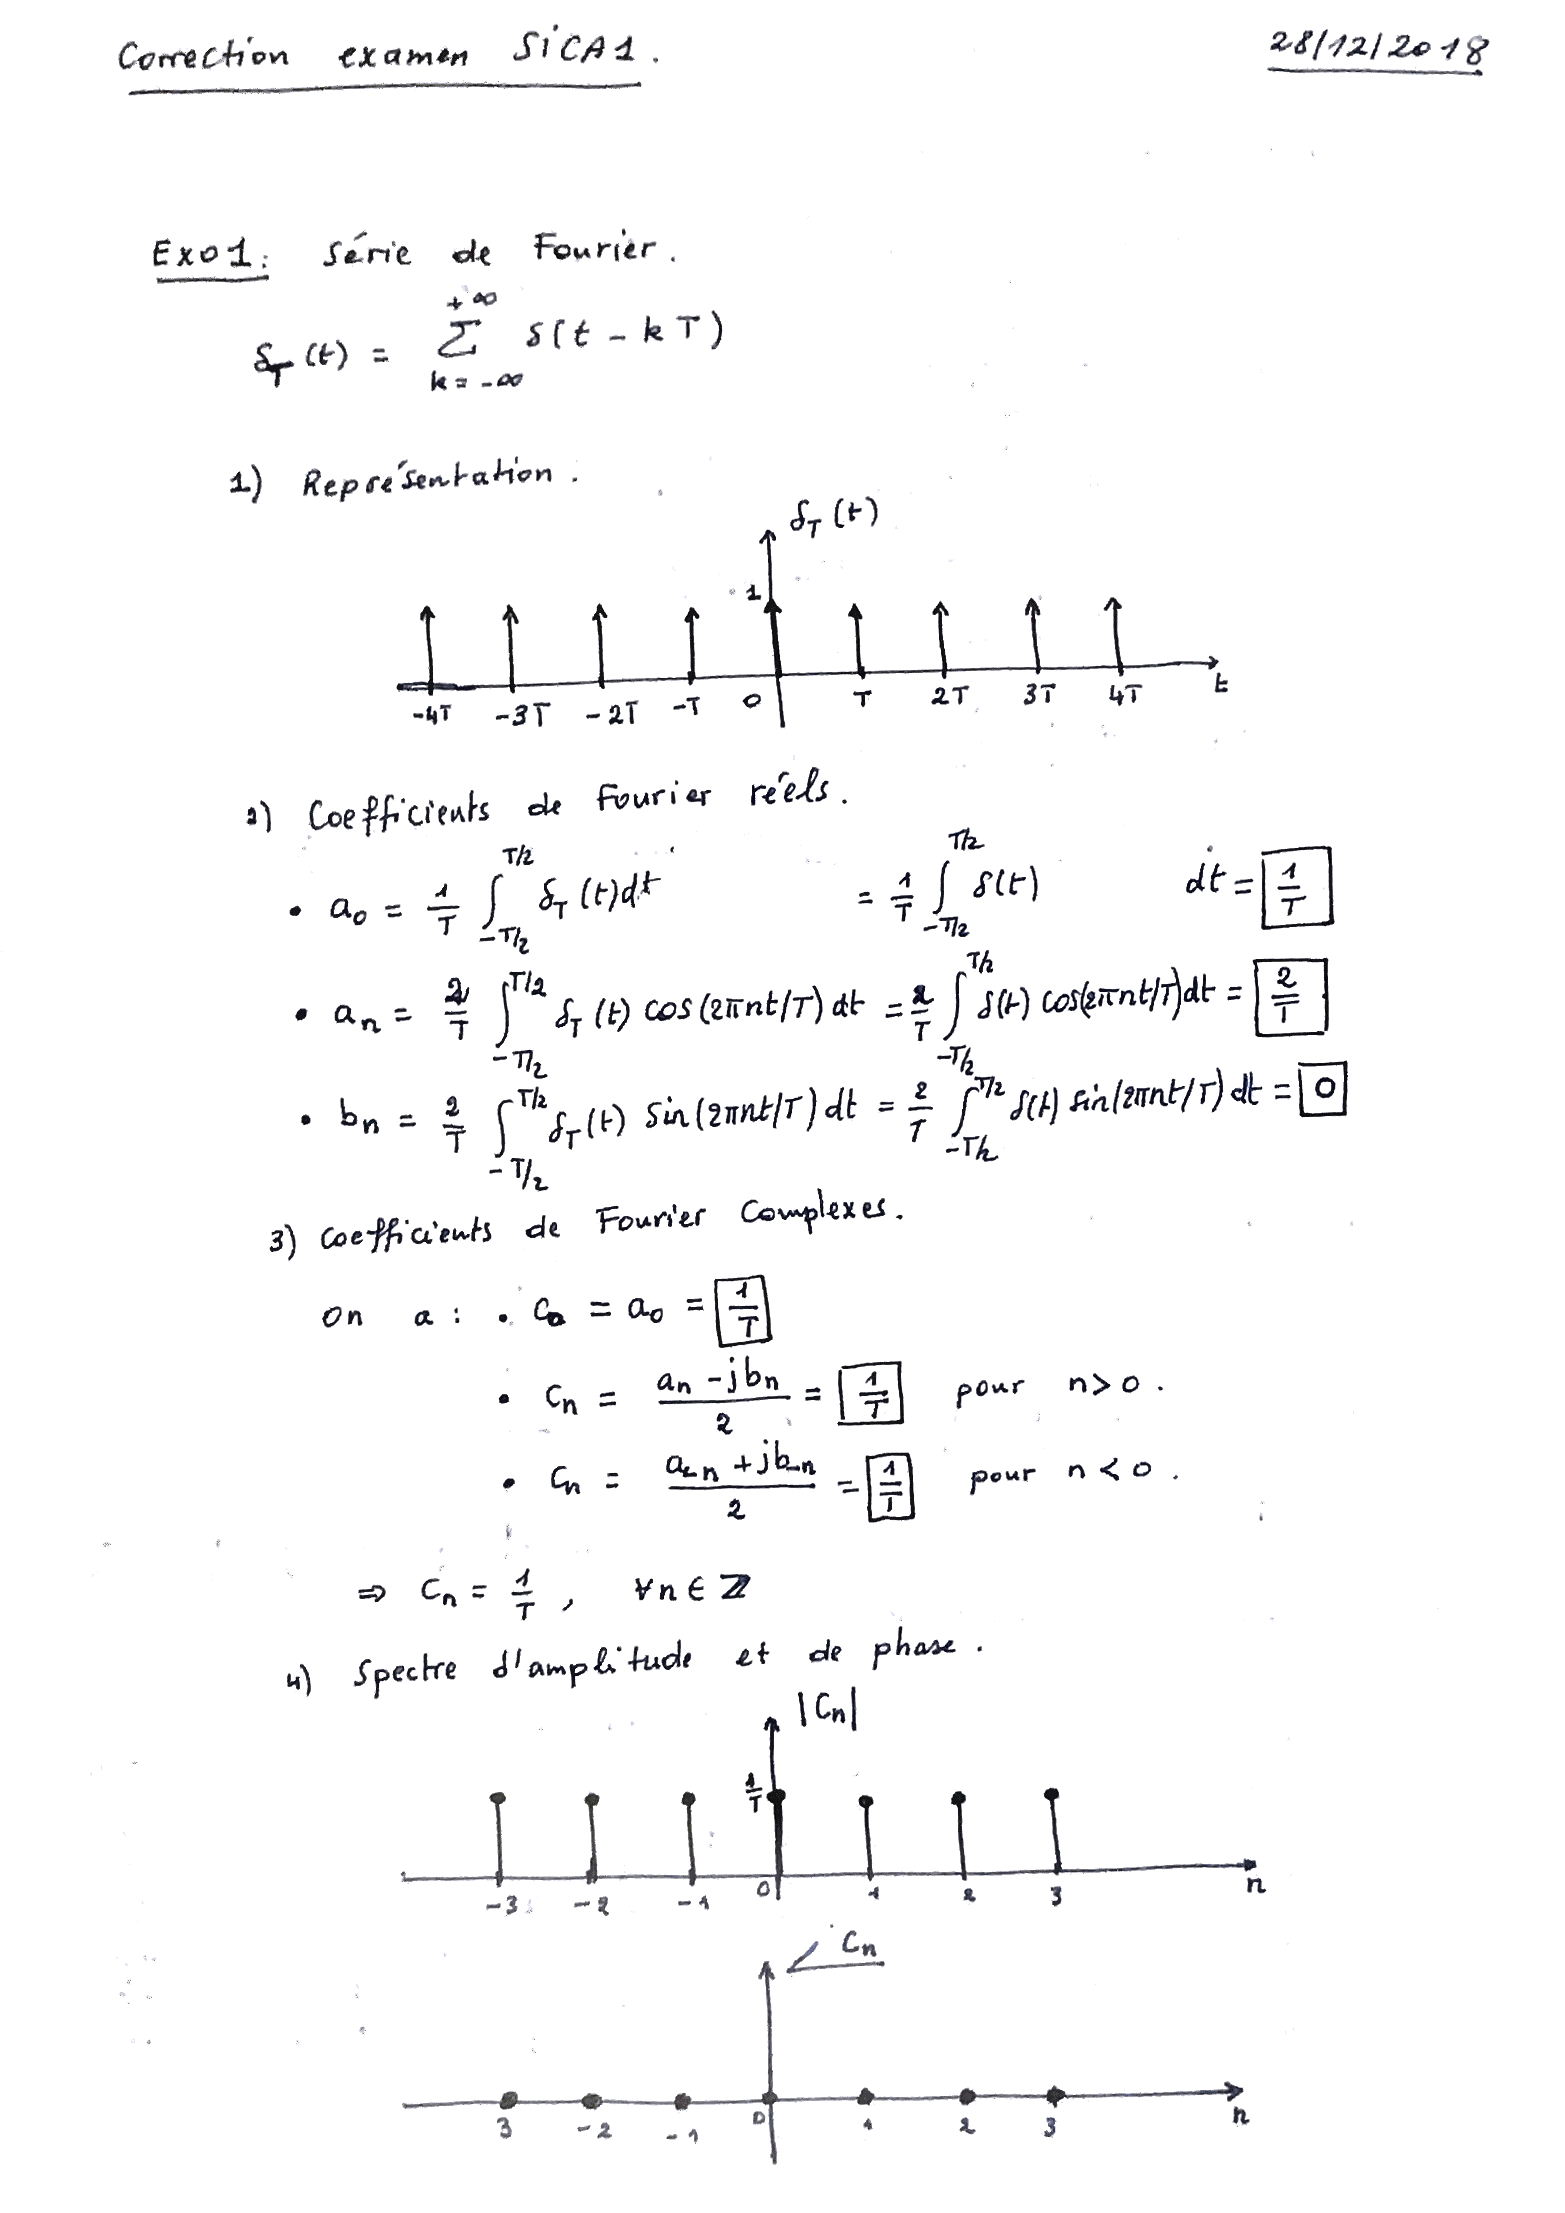 Correction examen SiCA1.
28/12/2018
Exo1: Série de Fourier.
δ_T(t) = Σ_{k=-∞}^{+∞} δ(t - kT)
1) Représentation.
δ_T(t)
1
-4T -3T -2T -T 0 T 2T 3T 4T t
2) Coefficients de Fourier réels.
• a₀ = 1/T ∫_{-T/2}^{T/2} δ_T(t)dt = 1/T ∫_{-T/2}^{T/2} δ(t) dt = 1/T
• aₙ = 2/T ∫_{-T/2}^{T/2} δ_T(t) cos(2πnt/T) dt = 2/T ∫_{-T/2}^{T/2} δ(t) cos(2πnt/T)dt = 2/T
• bₙ = 2/T ∫_{-T/2}^{T/2} δ_T(t) sin(2πnt/T) dt = 2/T ∫_{-T/2}^{T/2} δ(t) sin(2πnt/T) dt = 0
3) Coefficients de Fourier Complexes.
On a : • C₀ = a₀ = 1/T
• Cₙ = (aₙ - jbₙ)/2 = 1/T pour n > 0.
• Cₙ = (a₋ₙ + jb₋ₙ)/2 = 1/T pour n < 0.
⇒ Cₙ = 1/T , ∀n ∈ ℤ
4) Spectre d'amplitude et de phase.
|Cₙ|
1/T
-3 -2 -1 0 1 2 3 n
∠Cₙ
3 -2 -1 0 1 2 3 n